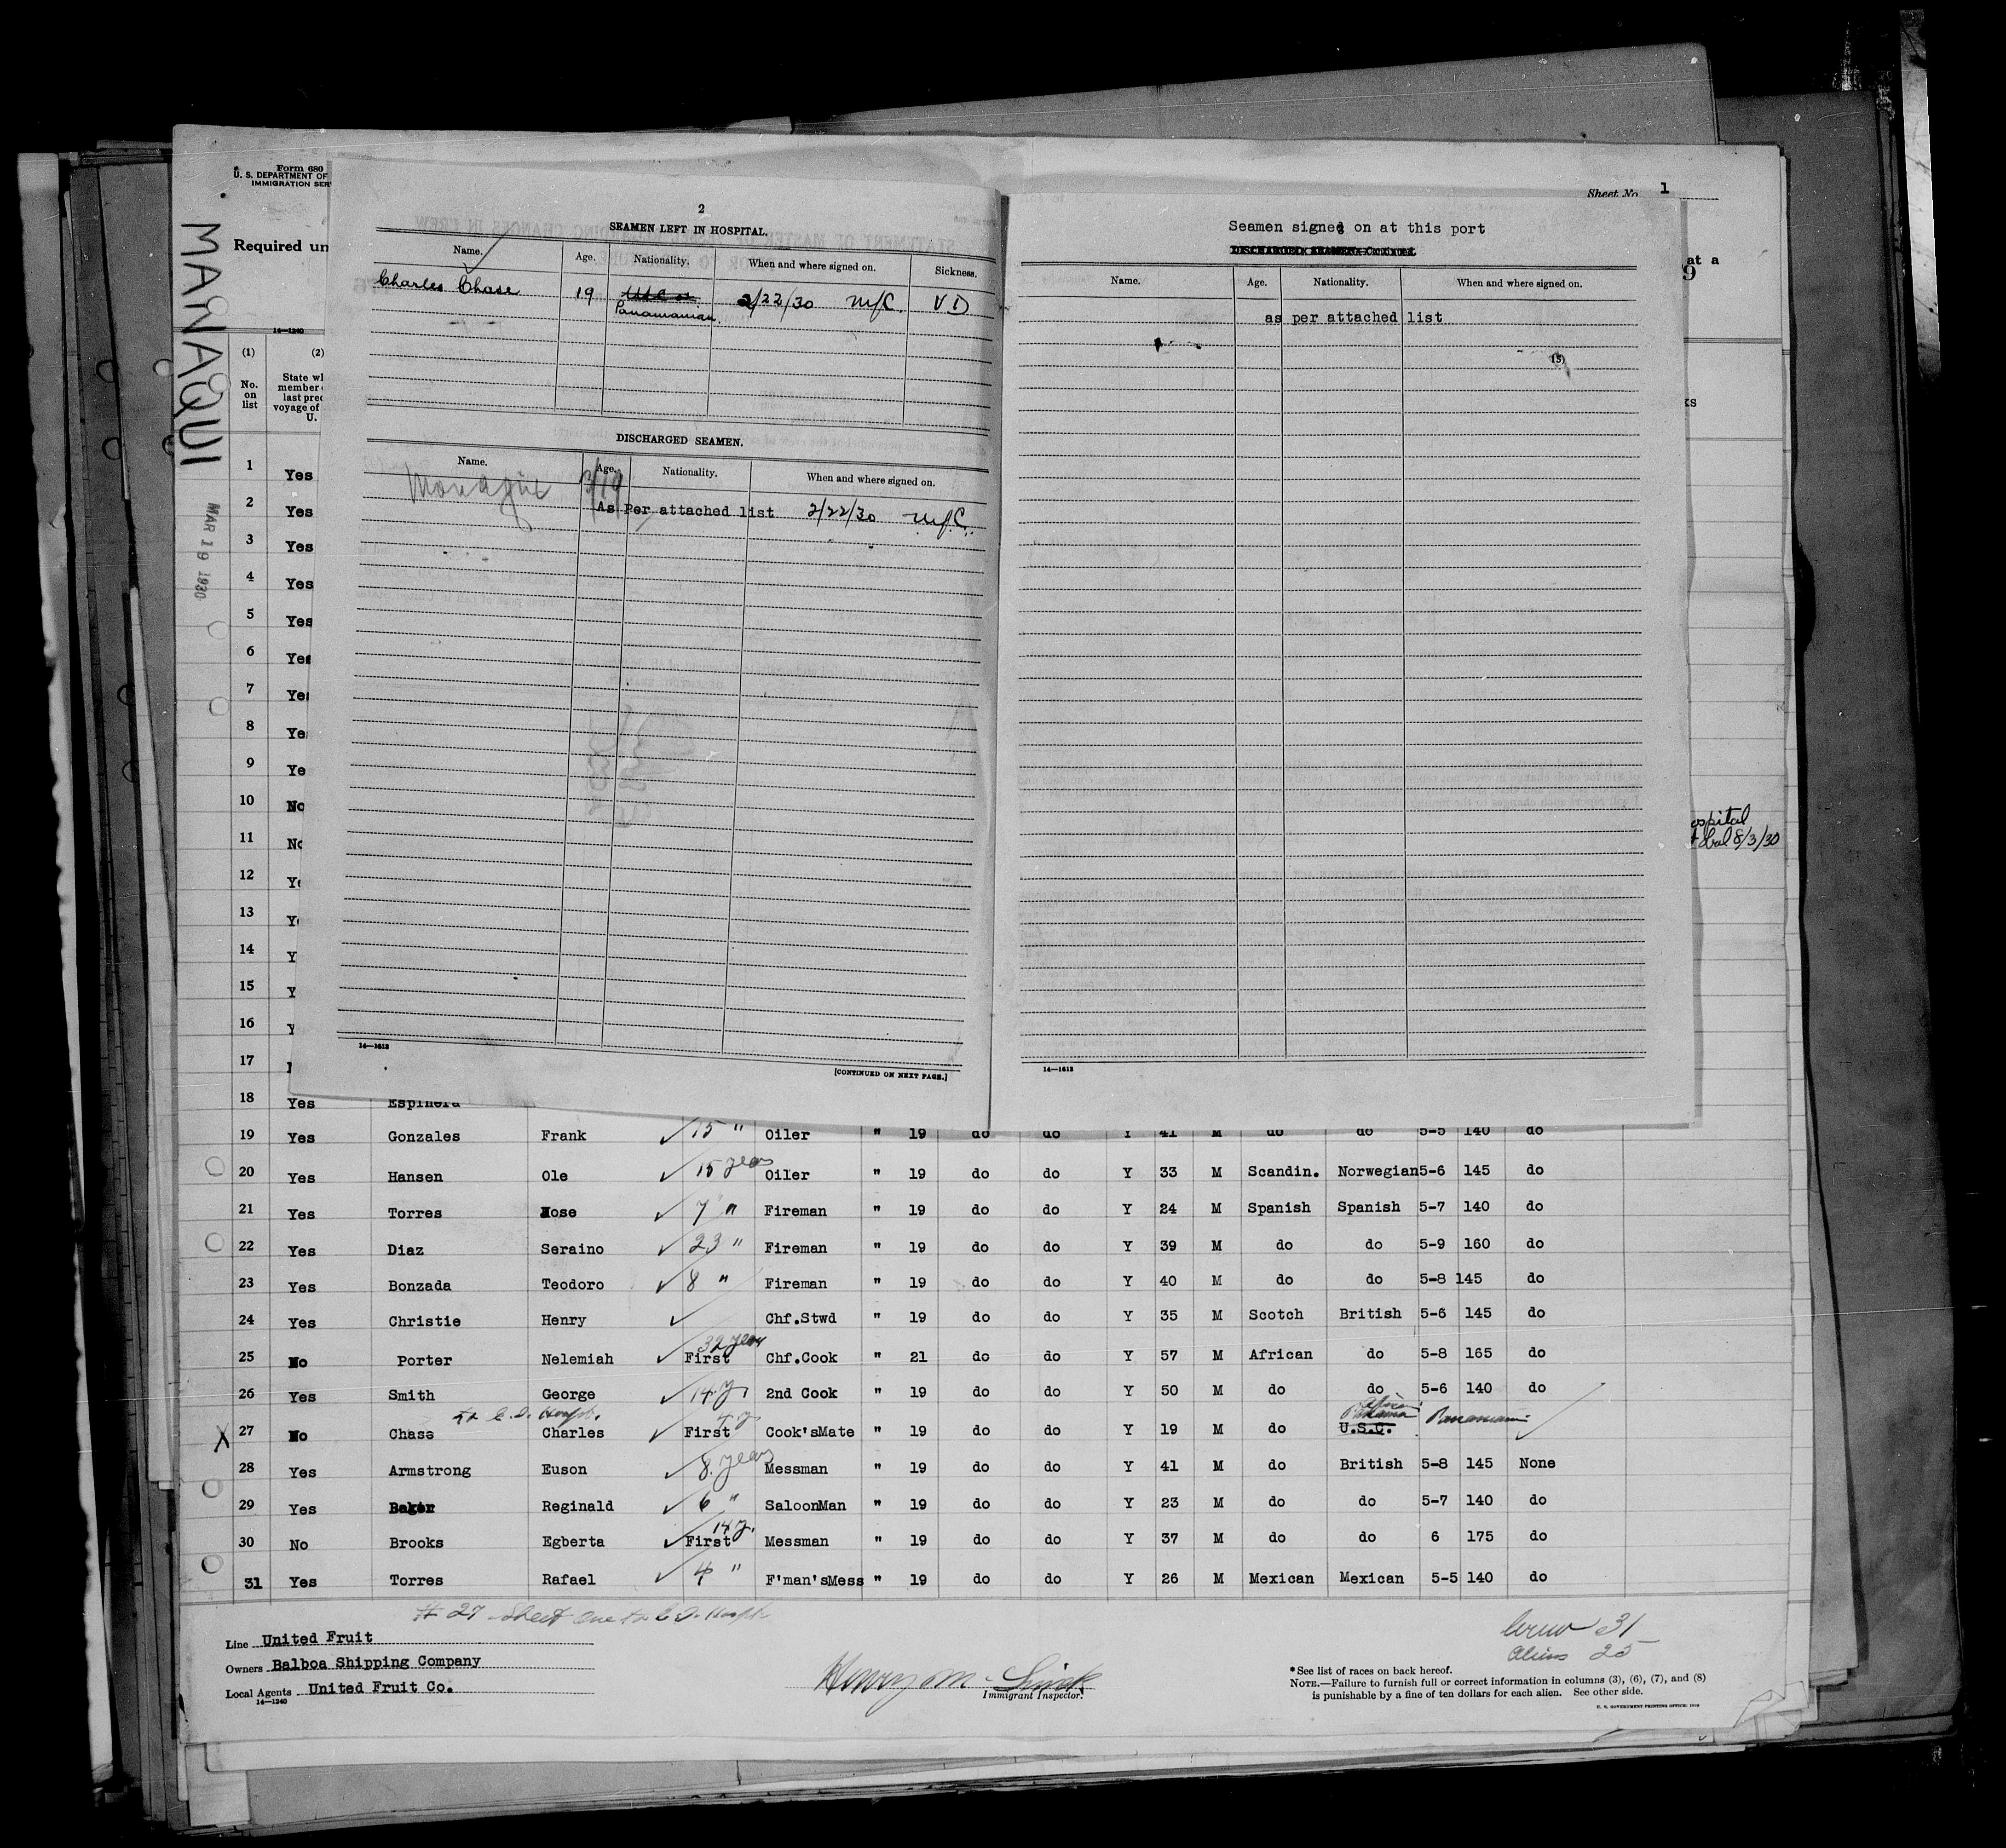 Form 680
U. S. DEPARTMENT OF
IMMIGRATION SER
Required un
14—1240
MANAQUI
MAR 19 1930
Sheet No. 1
at a
9
ks
(1) (2)
No. on list
State wh
member
last prec
voyage of
U.
2
SEAMEN LEFT IN HOSPITAL.
Name. Age. Nationality. When and where signed on. Sickness.
Charles Chase 19 Panamanian. 2/22/30 NYC. VD
DISCHARGED SEAMEN.
Name. Age. Nationality. When and where signed on.
Managui 3/19
As Per attached list 2/22/30 NYC.
14—1613
[CONTINUED ON NEXT PAGE.]
Seamen signed on at this port
DISCHARGED SEAMEN—Continued.
Name. Age. Nationality. When and where signed on.
as per attached list
15)
14—1613
ospital
8/3/30
1 Yes
2 Yes
3 Yes
4 Yes
5 Yes
6 Yes
7 Yes
8 Ye
9 Ye
10 No
11 No
12 Ye
13 Y
14 Y
15 Y
16 Y
17
18 Yes Espinera
19 Yes Gonzales Frank 15 " Oiler " 19 do do Y 41 M do do 5-5 140 do
20 Yes Hansen Ole 15 years Oiler " 19 do do Y 33 M Scandin. Norwegian 5-6 145 do
21 Yes Torres Jose 7 " Fireman " 19 do do Y 24 M Spanish Spanish 5-7 140 do
22 Yes Diaz Seraino 23 " Fireman " 19 do do Y 39 M do do 5-9 160 do
23 Yes Bonzada Teodoro 8 " Fireman " 19 do do Y 40 M do do 5-8 145 do
24 Yes Christie Henry Chf.Stwd " 19 do do Y 35 M Scotch British 5-6 145 do
25 No Porter Nelemiah 32 years First Chf.Cook " 21 do do Y 57 M African do 5-8 165 do
26 Yes Smith George 14 y. 2nd Cook " 19 do do Y 50 M do do 5-6 140 do
to E. I. Hosp.
X 27 No Chase Charles 4 y First Cook'sMate " 19 do do Y 19 M do U.S.C. Panama Panamanian
28 Yes Armstrong Euson 8 years Messman " 19 do do Y 41 M do British 5-8 145 None
29 Yes Baker Reginald 6 " SaloonMan " 19 do do Y 23 M do do 5-7 140 do
30 No Brooks Egberta 14 y. First Messman " 19 do do Y 37 M do do 6 175 do
31 Yes Torres Rafael 4 " F'man'sMess " 19 do do Y 26 M Mexican Mexican 5-5 140 do
# 27 Sheet One to E. I. Hosph
Line United Fruit
Owners Balboa Shipping Company
Local Agents United Fruit Co.
14—1240
Henry M.
Immigrant Inspector.
Crew 31
Aliens 25
*See list of races on back hereof.
NOTE.—Failure to furnish full or correct information in columns (3), (6), (7), and (8)
is punishable by a fine of ten dollars for each alien. See other side.
U. S. GOVERNMENT PRINTING OFFICE: